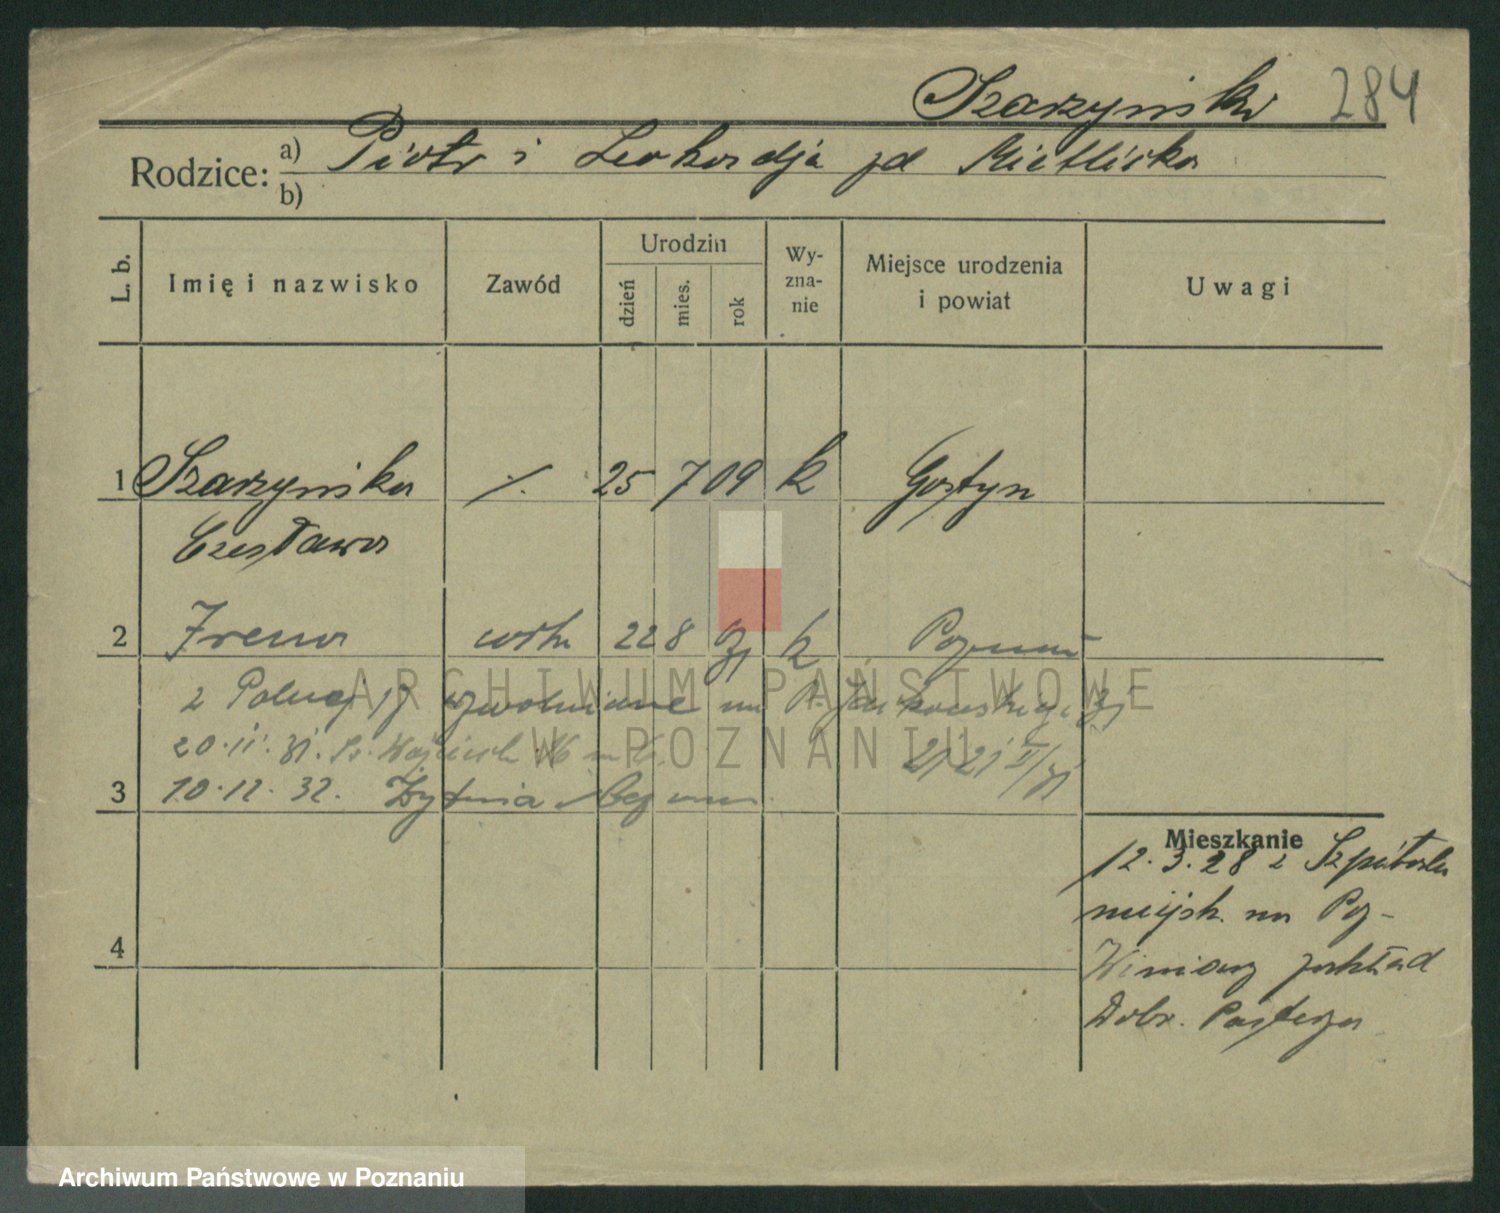 Szarzyński 284
Rodzice: a) Piotr i Leokardja zd Mietlicka
b)
L. b. Imię i nazwisko Zawód Urodzin dzień mies. rok Wyznanie Miejsce urodzenia i powiat Uwagi
1 Szarzyńska ./. 25 7 09 k Gostyn
Czesława
2 Irena córka 22 8 31 k Poznań
z Polnej 17 na
20.11.31. Św. Wojciech
3 10.12.32. Żytnia
Mieszkanie
12.3.28 z Szpitala
miejsk. na Poz-
Winiary zakład
Dobr. Pasterza
4
ARCHIWUM PAŃSTWOWE
W POZNANIU
Archiwum Państwowe w Poznaniu